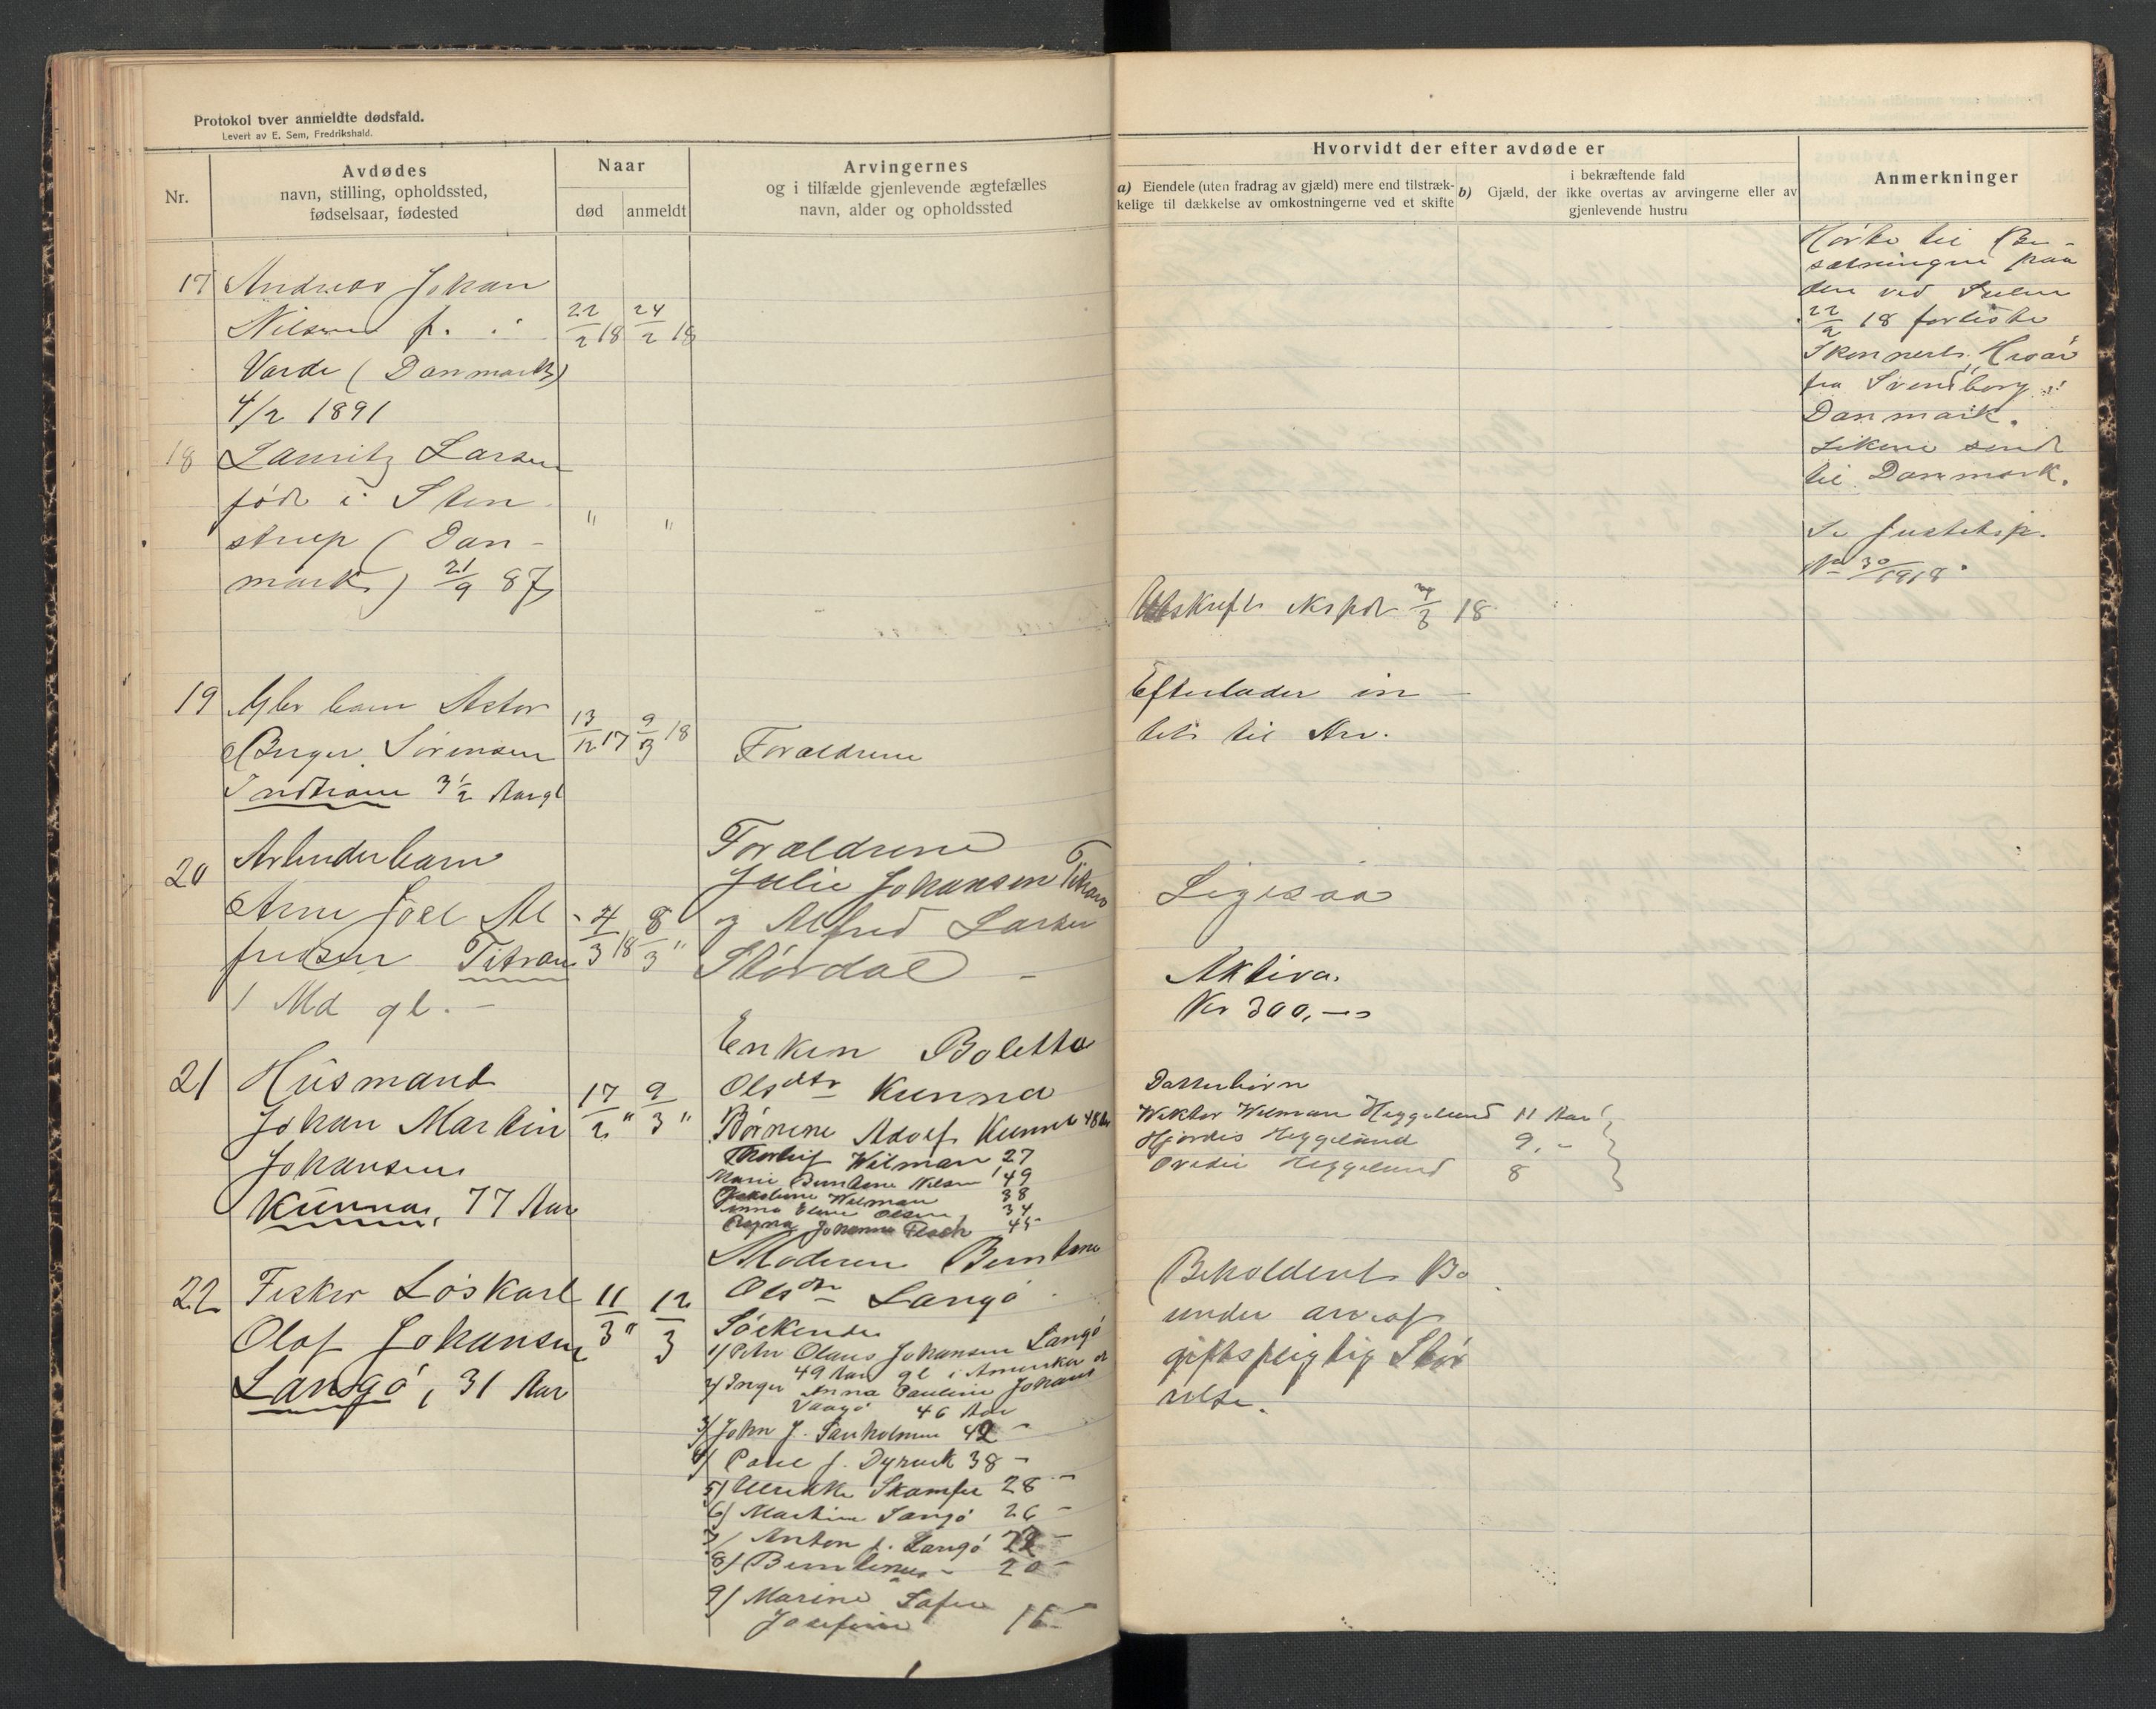 Protokol over anmeldte dødsfald.
Levert av E. Sem, Fredrikshald.
Nr.
Avdødes
navn, stilling, opholdssted,
fødselsaar, fødested
Naar
død
anmeldt
Arvingernes
og i tilfælde gjenlevende ægtefælles
navn, alder og opholdssted
17
Andreas Johan
Nilsen f. i
Varde (Danmark)
4/2 1891
22/2 18
24/2 18
18
Lauritz Larsen
født i Sten
strup (Dan-
mark) 21/9 87
"
"
19
Gbr barn Astor
Birger Sørensen
3 1/2 Aar gl
13/12 17
9/3 18
Forældrene
20
Arbeiderbarn
Arne Joel Al
fredsen Titran
1 Md gl. -
4/3 18
8/3 "
Forældrene
Julie Johansen Titran
og Alfred Larsen
Stördal -
21
Husmand
Johan Martin
Johansen
Kunna, 77 Aar
17/2 "
9/3 "
Enken Boletta
Olsdtr Kunna
Börnene Adolf Kunna 48
Thorleif Wilman 27
Marie Berntine Nilsen 49
Wilman 38
Anna Olsen 34
Johanna 45
22
Fisker Løskarl
Olaf Johansen
Langö, 31 Aar
11/3 "
12/3
Moderen Berntine
Olsdtr Langö
Söskende
1/ Peter Olaus Johansen Langö
49 Aar gl i Amerika
2/ Inger Anna Pauline Johans
46 Aar
3/ John J. 42 -
4/ Paul J. Dyrvik 38 -
5/ Ulrikke Skamfer 28 -
6/ Martin Langö 26 -
7/ Anton J. Langö 22 -
8/ 20 -
9/ Marine
Josefine 16 -
Hvorvidt der efter avdøde er
a) Eiendele (uten fradrag av gjæld) mere end tilstræk-
kelige til dækkelse av omkostningerne ved et skifte
i bekræftende fald
b) Gjæld, der ikke overtas av arvingerne eller av
gjenlevende hustru
Anmerkninger
Hørte til Be-
sætningen paa
den ved Sulen
22/2 18 forliste
Skonnert Hroar
fra Svendborg i
Danmark.
Likene sendt
til Danmark.
Se
No 30/1918.
Utskrift ekspdt /3 18
Efterlader in -
tet til Arv.
Ligesaa
Aktiva.
Kr 300,-
Datterbörn
Wiktor Wilman Heggelund 11 Aar
Hjördis Heggelund 9. -
Ovedie Heggelund 8
Beholdent Bo
under arveaf
giftspligtig Stör
relse.